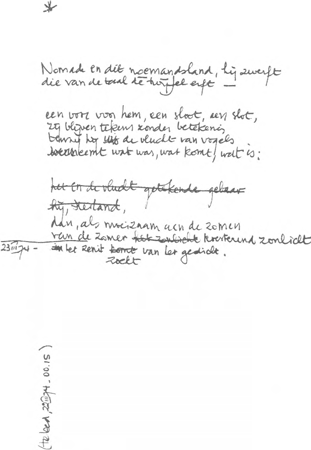 *
Nomade en dit niemandsland, hij zwerft
die van de taal de twijfel erft —
een voor voor hem, een sloot, een slot,
zij blijven tekens zonder betekenis
tenzij hij de vlucht van vogels
neemt wat was, wat komt, wat is:
het en de vlucht getekende gebaar
hij,
dan, als aan de zomen
van de zomer het zonlicht zonlicht
23 III 74 - het zenit komt van het gedicht.
zoekt
(te bed, 22 III 74 - 00.15)